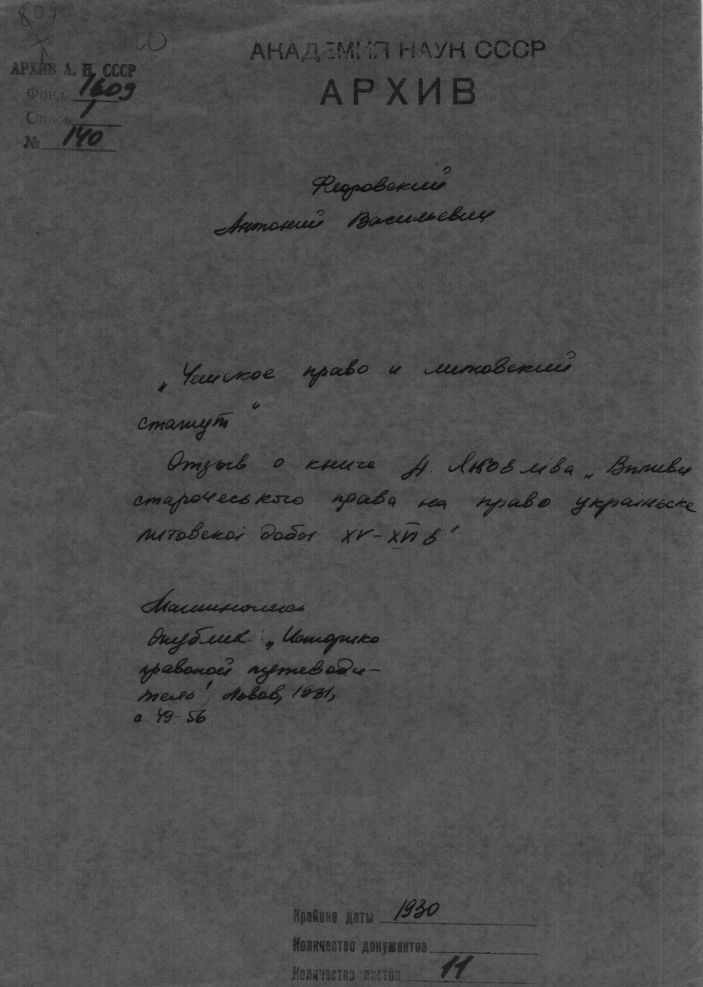 АРХИВ А. Н. СССР
Фонд 1609
Опись 1
№ 140
АКАДЕМИЯ НАУК СССР
АРХИВ
Федровский
Антоний Васильевич
„Чешское право и литовский
статут“
Отзыв о книге А. Яковліва „Впливи
старочеського права на право українське
литовської доби XV–XVI в“
Машинопись
Опублик: „Историко
правовой путеводи-
тель“, Львов, 1931,
с. 49-56
Крайние даты 1930
Количество документов
Количество листов 11